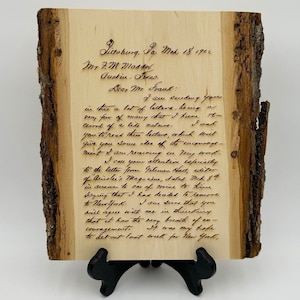 Pittsburg Pa Mch 18 190
Mr F. W. Maddox
Austin Texas
Dear Mr Frank:
I am sending you
in this a lot of letters, being
very few of many that I have
of a like nature. I want
you to read these letters, which will
give you some idea of the encourage-
ment I am receiving in my work.
I call your attention especially
to the letter from Gilman Hall, editor
of Ainslee's Magazine, dated Mch 8th
in answer to one of mine to him
saying that I had decided to remove
to New York. I am sure that you
will agree with me in thinking
that it has the very breath of en-
couragement. It was my hope
to set out last week for New York,